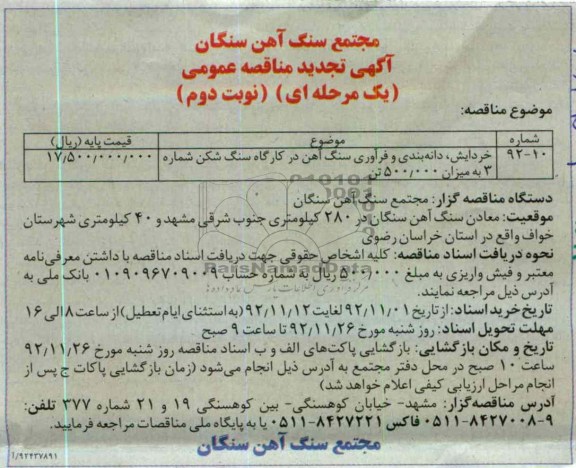 مجتمع سنگ آهن سنگان
آگهی تجدید مناقصه عمومی
(یک مرحله ای) (نوبت دوم)
موضوع مناقصه:
شماره موضوع قیمت پایه (ریال)
۹۲-۱۰ خردایش، دانه‌بندی و فرآوری سنگ آهن در کارگاه سنگ شکن شماره ۱۷,۵۰۰,۰۰۰,۰۰۰
۳ به میزان ۵۰۰,۰۰۰ تن
دستگاه مناقصه گزار: مجتمع سنگ آهن سنگان
موقعیت: معادن سنگ آهن سنگان در ۲۸۰ کیلومتری جنوب شرقی مشهد و ۴۰ کیلومتری شهرستان
خواف واقع در استان خراسان رضوی
نحوه دریافت اسناد مناقصه: کلیه اشخاص حقوقی جهت دریافت اسناد مناقصه با داشتن معرفی‌نامه
معتبر و فیش واریزی به مبلغ ۵۰۰,۰۰۰ ریال به شماره حساب ۰۱۰۹۰۹۶۷۰۹۰۰۹ بانک ملی به
آدرس ذیل مراجعه نمایند.
تاریخ خرید اسناد: از تاریخ ۹۲/۱۱/۰۱ لغایت ۹۲/۱۱/۱۲ (به استثنای ایام تعطیل) از ساعت ۸ الی ۱۶
مهلت تحویل اسناد: روز شنبه مورخ ۹۲/۱۱/۲۶ تا ساعت ۹ صبح
تاریخ و مکان بازگشایی: بازگشایی پاکت‌های الف و ب اسناد مناقصه روز شنبه مورخ ۹۲/۱۱/۲۶
ساعت ۱۰ صبح در محل دفتر مجتمع به آدرس ذیل انجام می‌شود (زمان بازگشایی پاکات ج پس از
انجام مراحل ارزیابی کیفی اعلام خواهد شد)
آدرس مناقصه‌گزار: مشهد- خیابان کوهسنگی- بین کوهسنگی ۱۹ و ۲۱ شماره ۳۷۷ تلفن:
۰۵۱۱-۸۴۲۷۰۰۸-۹ فاکس ۰۵۱۱-۸۴۲۷۲۲۱ یا به پایگاه ملی مناقصات مراجعه فرمایید.
مجتمع سنگ آهن سنگان
۹۲۴۳۷۸۹۱/آ
ParsNamadData